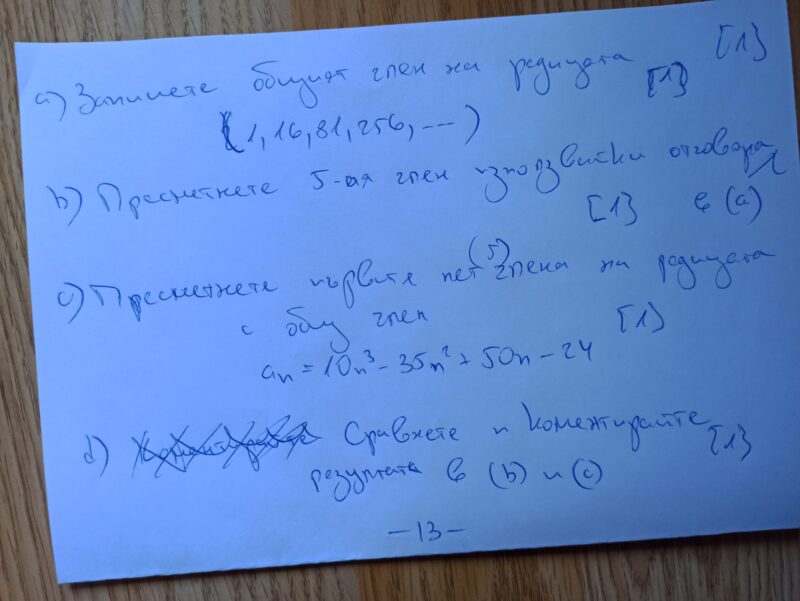 a) Запишете общият член на редицата [1]
(1, 16, 81, 256, ---) [1]
b) Пресметнете 5-ия член използвйки отговора
[1] в (a)
c) Пресметнете първите пет (5) члена на редицата
с общ член [1]
aₙ = 10n³ - 35n² + 50n - 24
d) Сравнете и Коментирайте [1]
резултата в (b) и (c)
- 13 -